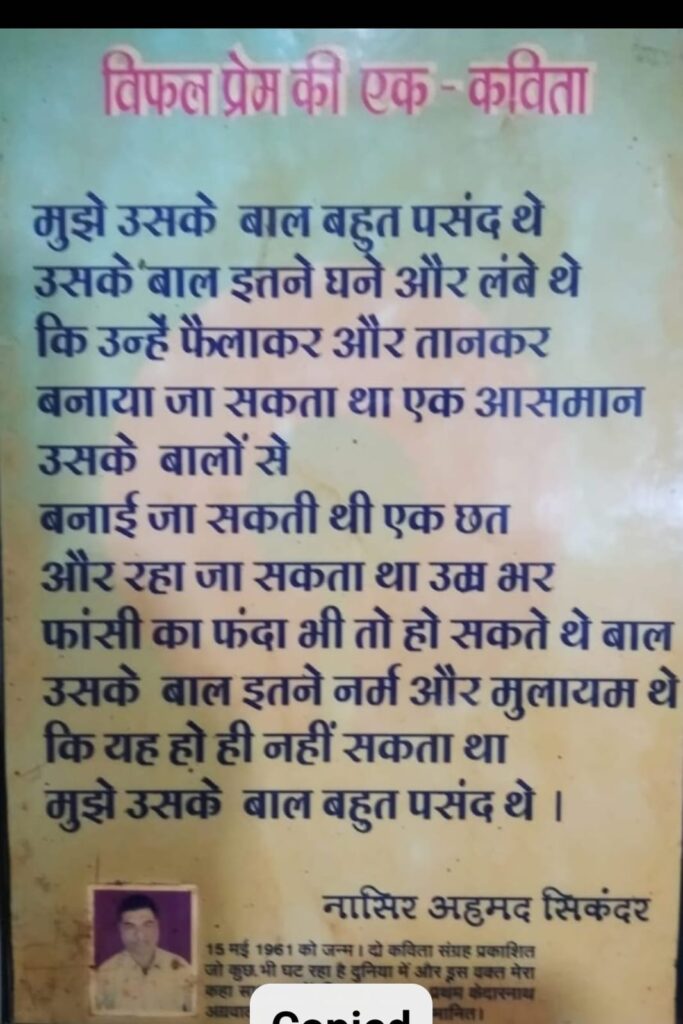 विफल प्रेम की एक - कविता
मुझे उसके बाल बहुत पसंद थे
उसके बाल इतने घने और लंबे थे
कि उन्हें फैलाकर और तानकर
बनाया जा सकता था एक आसमान
उसके बालों से
बनाई जा सकती थी एक छत
और रहा जा सकता था उम्र भर
फांसी का फंदा भी तो हो सकते थे बाल
उसके बाल इतने नर्म और मुलायम थे
कि यह हो ही नहीं सकता था
मुझे उसके बाल बहुत पसंद थे ।
नासिर अहमद सिकंदर
15 मई 1961 को जन्म । दो कविता संग्रह प्रकाशित
जो कुछ भी घट रहा है दुनिया में और इस वक्त मेरा
कहा प्रथम केदारनाथ
Copied